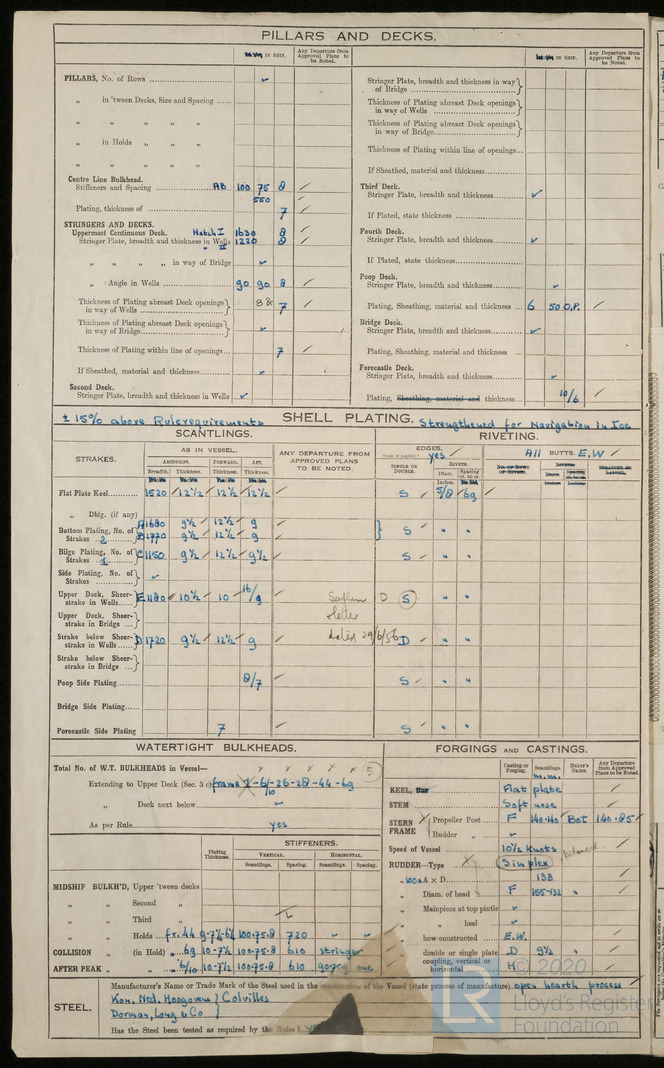 PILLARS AND DECKS.
IN SHIP.
Any Departure from Approved Plans to be Noted.
PILLARS, No. of Rows ✓
„ in 'tween Decks, Size and Spacing
„ „ „ „ „
„ in Holds „ „
„ „ „ „ „
Centre Line Bulkhead.
Stiffeners and Spacing AB 100 75 8 ✓
550
Plating, thickness of 7 ✓
STRINGERS AND DECKS.
Uppermost Continuous Deck. Hatch I 1630 8 ✓
Stringer Plate, breadth and thickness in Wells „ II 1220 8 ✓
„ „ „ „ in way of Bridge ✓
„ Angle in Wells 90 90 8 ✓
Thickness of Plating abreast Deck openings in way of Wells 7 ✓
Thickness of Plating abreast Deck openings in way of Bridge ✓
Thickness of Plating within line of openings 7 ✓
If Sheathed, material and thickness ✓
Second Deck.
Stringer Plate, breadth and thickness in Wells ✓
IN SHIP.
Any Departure from Approved Plans to be Noted.
Stringer Plate, breadth and thickness in way of Bridge
Thickness of Plating abreast Deck openings in way of Wells
Thickness of Plating abreast Deck openings in way of Bridge
Thickness of Plating within line of openings
If Sheathed, material and thickness
Third Deck.
Stringer Plate, breadth and thickness ✓
If Plated, state thickness
Fourth Deck.
Stringer Plate, breadth and thickness ✓
If Plated, state thickness
Poop Deck.
Stringer Plate, breadth and thickness ✓
Plating, Sheathing, material and thickness 6 50 O.P. ✓
Bridge Deck.
Stringer Plate, breadth and thickness ✓
Plating, Sheathing, material and thickness
Forecastle Deck.
Stringer Plate, breadth and thickness ✓
Plating, Sheathing, material and thickness 10/6 ✓
± 15% above Rulerequirements SHELL PLATING. Strengthened for Navigation in Ice
SCANTLINGS.
RIVETING.
STRAKES.
AS IN VESSEL.
AMIDSHIPS. FORWARD. AFT.
Breadth. Thickness. Thickness. Thickness.
ANY DEPARTURE FROM APPROVED PLANS TO BE NOTED.
EDGES. yes ✓
SINGLE OR DOUBLE.
RIVETS.
Diam. Spacing
All BUTTS. E.W ✓
Flat Plate Keel 1520 12½ 12½ 12½ ✓ S 5/8 69
„ Dblg. (if any)
Bottom Plating, No. of Strakes 2 A 1680 9½ 12½ 9 ✓ S „ „
B 1770 9½ 12½ 9 ✓
Bilge Plating, No. of Strakes 1 C 1150 9½ 12½ 9½ ✓ S „ „
Side Plating, No. of Strakes ✓
Upper Deck, Sheerstrake in Wells E 1180 10½ 10 16/9 ✓ D S „ „
Upper Deck, Sheerstrake in Bridge letter
Strake below Sheerstrake in Wells D 1720 9½ 12½ 9 ✓ dated 29/6/56 D „ „
Strake below Sheerstrake in Bridge
Poop Side Plating 8/7 ✓ S „ „
Bridge Side Plating
Forecastle Side Plating 7 ✓ S „ „
WATERTIGHT BULKHEADS.
Total No. of W.T. BULKHEADS in Vessel— 5
Extending to Upper Deck (Sec. 3 c) frame 6/10-26-28-44-69
„ Deck next below ✓
As per Rule yes
Plating Thickness.
STIFFENERS.
VERTICAL. HORIZONTAL.
Scantlings. Spacing. Scantlings. Spacing.
MIDSHIP BULKH'D, Upper 'tween decks
„ „ Second „
„ „ Third „
„ „ Holds fr. 44 9-7½-6½ 100.75.8 720
COLLISION „ (in Hold) „ 69 10-7½ 100.75.8 610 stringer
AFTER PEAK „ „ „ 6/10 10-7½ 100.75.8 610 one
FORGINGS AND CASTINGS.
Casting or Forging. Scantlings. m.m. Maker's Name. Any Departure from Approved Plans to be Noted.
KEEL, Bar Flat plate ✓
STEM Soft nose ✓
STERN FRAME Propeller Post F 140.40 Bot 140.85 ✓
Rudder „ ✓
Speed of Vessel 10½ knots
RUDDER—Type Simplex balanced
A × D 133 ✓
„ Diam. of head F 155-132 „ ✓
„ Mainpiece at top pintle ✓
„ „ heel ✓
„ how constructed E.W. ✓
„ double or single plate D 9½ ✓
„ coupling, vertical or horizontal H
STEEL.
Manufacturer's Name or Trade Mark of the Steel used in the construction of the Vessel (state process of manufacture) open hearth process ✓
Kon. Ned. Hoogovens } Colvilles
Dorman, Long & Co
Has the Steel been tested as required by the Rules?
© 2020
LR
Lloyd's Register
Foundation